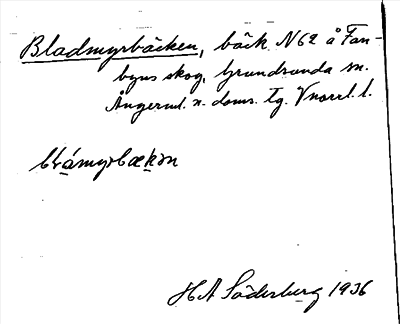 Bladmyrbäcken, bäck N62 å Fan-
byns skog, Grundsunda sn.
Ångerml. n. doms. tg. Vnorrl. l.
HA Söderberg 1936